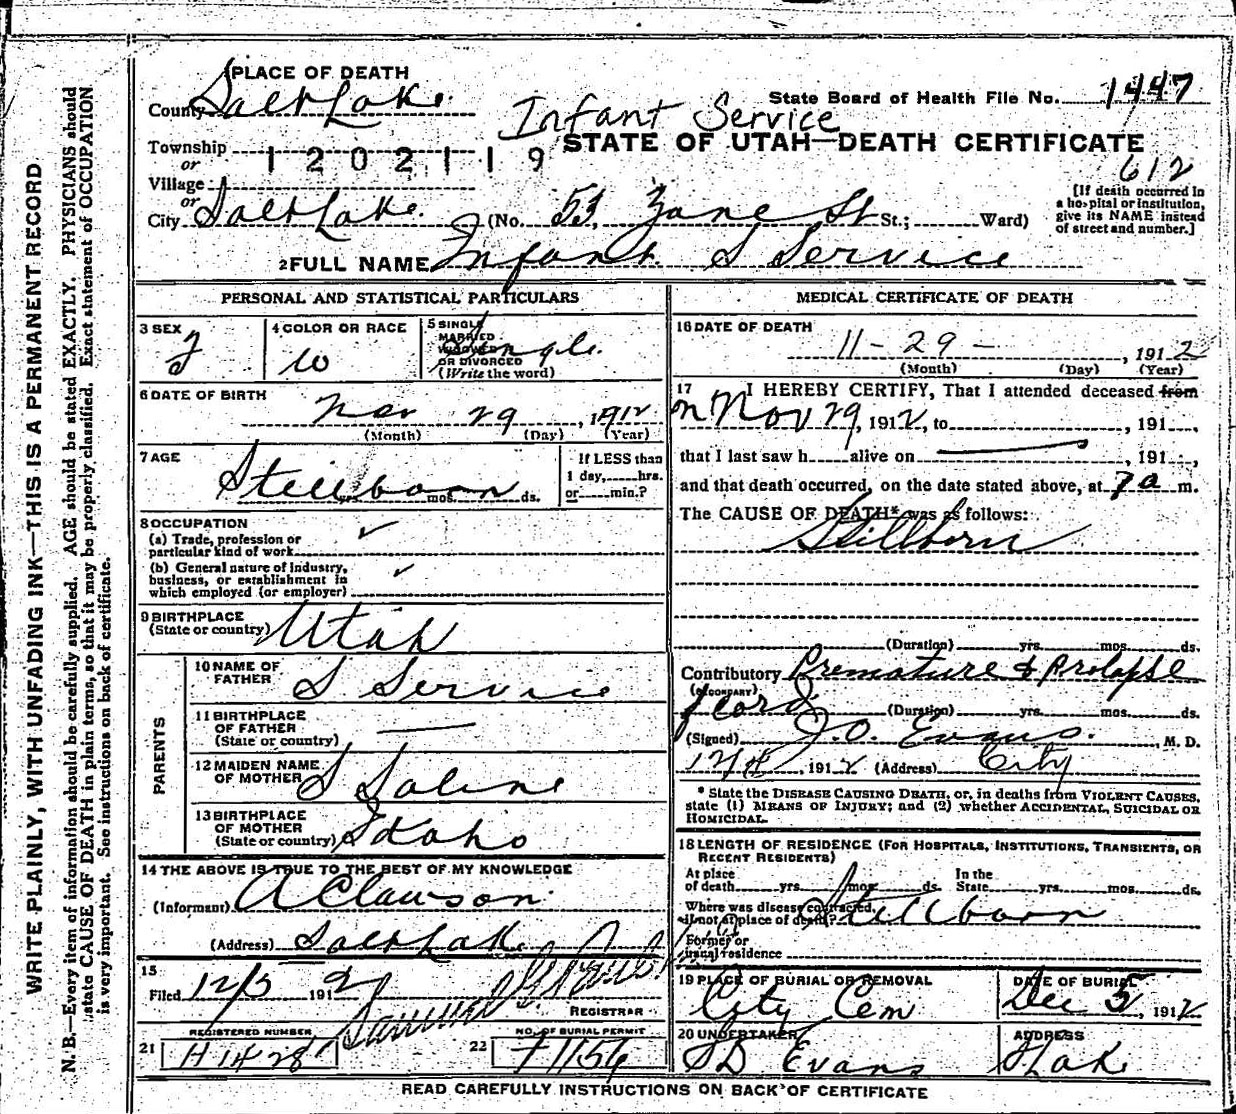 WRITE PLAINLY, WITH UNFADING INK—THIS IS A PERMANENT RECORD
N. B.—Every item of information should be carefully supplied. AGE should be stated EXACTLY. PHYSICIANS should
state CAUSE OF DEATH in plain terms, so that it may be properly classified. Exact statement of OCCUPATION
is very important. See instructions on back of certificate.
PLACE OF DEATH
County Salt Lake.
State Board of Health File No. 1447
Infant Service
Township
or
1202119
STATE OF UTAH—DEATH CERTIFICATE
612
Village
or
City Salt Lake. (No. 53, Zane St St.; Ward)
[If death occurred in
a hospital or institution,
give its NAME instead
of street and number.]
2 FULL NAME Infant S Service
PERSONAL AND STATISTICAL PARTICULARS
3 SEX F
4 COLOR OR RACE W
5 SINGLE
MARRIED
WIDOWED
OR DIVORCED
(Write the word)
Single.
6 DATE OF BIRTH
Nov 29, 1912
(Month) (Day) (Year)
7 AGE
Stillborn mos. ds.
If LESS than
1 day, hrs.
or min.?
8 OCCUPATION
(a) Trade, profession or
particular kind of work
(b) General nature of industry,
business, or establishment in
which employed (or employer)
9 BIRTHPLACE
(State or country) Utah
PARENTS
10 NAME OF
FATHER S Service
11 BIRTHPLACE
OF FATHER
(State or country)
12 MAIDEN NAME
OF MOTHER S
13 BIRTHPLACE
OF MOTHER
(State or country) Idaho
14 THE ABOVE IS TRUE TO THE BEST OF MY KNOWLEDGE
(Informant) A Clawson
(Address) Salt Lake
15
Filed 12/5 1912
REGISTRAR
REGISTERED NUMBER
21 H 1428
NO. OF BURIAL PERMIT
22 F1156
MEDICAL CERTIFICATE OF DEATH
16 DATE OF DEATH
11-29-, 1912
(Month) (Day) (Year)
17 I HEREBY CERTIFY, That I attended deceased from
on Nov 29, 1912, to , 191 ,
that I last saw h alive on , 191 ,
and that death occurred, on the date stated above, at 7 a m.
The CAUSE OF DEATH* was as follows:
Stillborn
(Duration) yrs. mos. ds.
Contributory Premature & Prolapse
(SECONDARY)
f cord (Duration) yrs. mos. ds.
(Signed) J.O. Evans. , M. D.
, 1912 (Address) City
* State the DISEASE CAUSING DEATH, or, in deaths from VIOLENT CAUSES,
state (1) MEANS OF INJURY; and (2) whether ACCIDENTAL, SUICIDAL OR
HOMICIDAL.
18 LENGTH OF RESIDENCE (FOR HOSPITALS, INSTITUTIONS, TRANSIENTS, OR
RECENT RESIDENTS)
At place
of death yrs. mos. ds.
In the
State yrs. mos. ds.
Where was disease contracted,
if not at place of death? Stillborn
Former or
usual residence
19 PLACE OF BURIAL OR REMOVAL
City Cem
DATE OF BURIAL
Dec 5, 1912
20 UNDERTAKER
SD Evans
ADDRESS
S Lake
READ CAREFULLY INSTRUCTIONS ON BACK OF CERTIFICATE